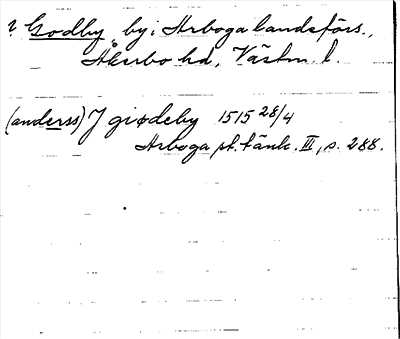 ? Godby by i Arboga landsförs.,
Åkerbo hd, Västm. l.
(anderss) J giødeby 1515 28/4
Arboga st. tänk. III, s. 288.